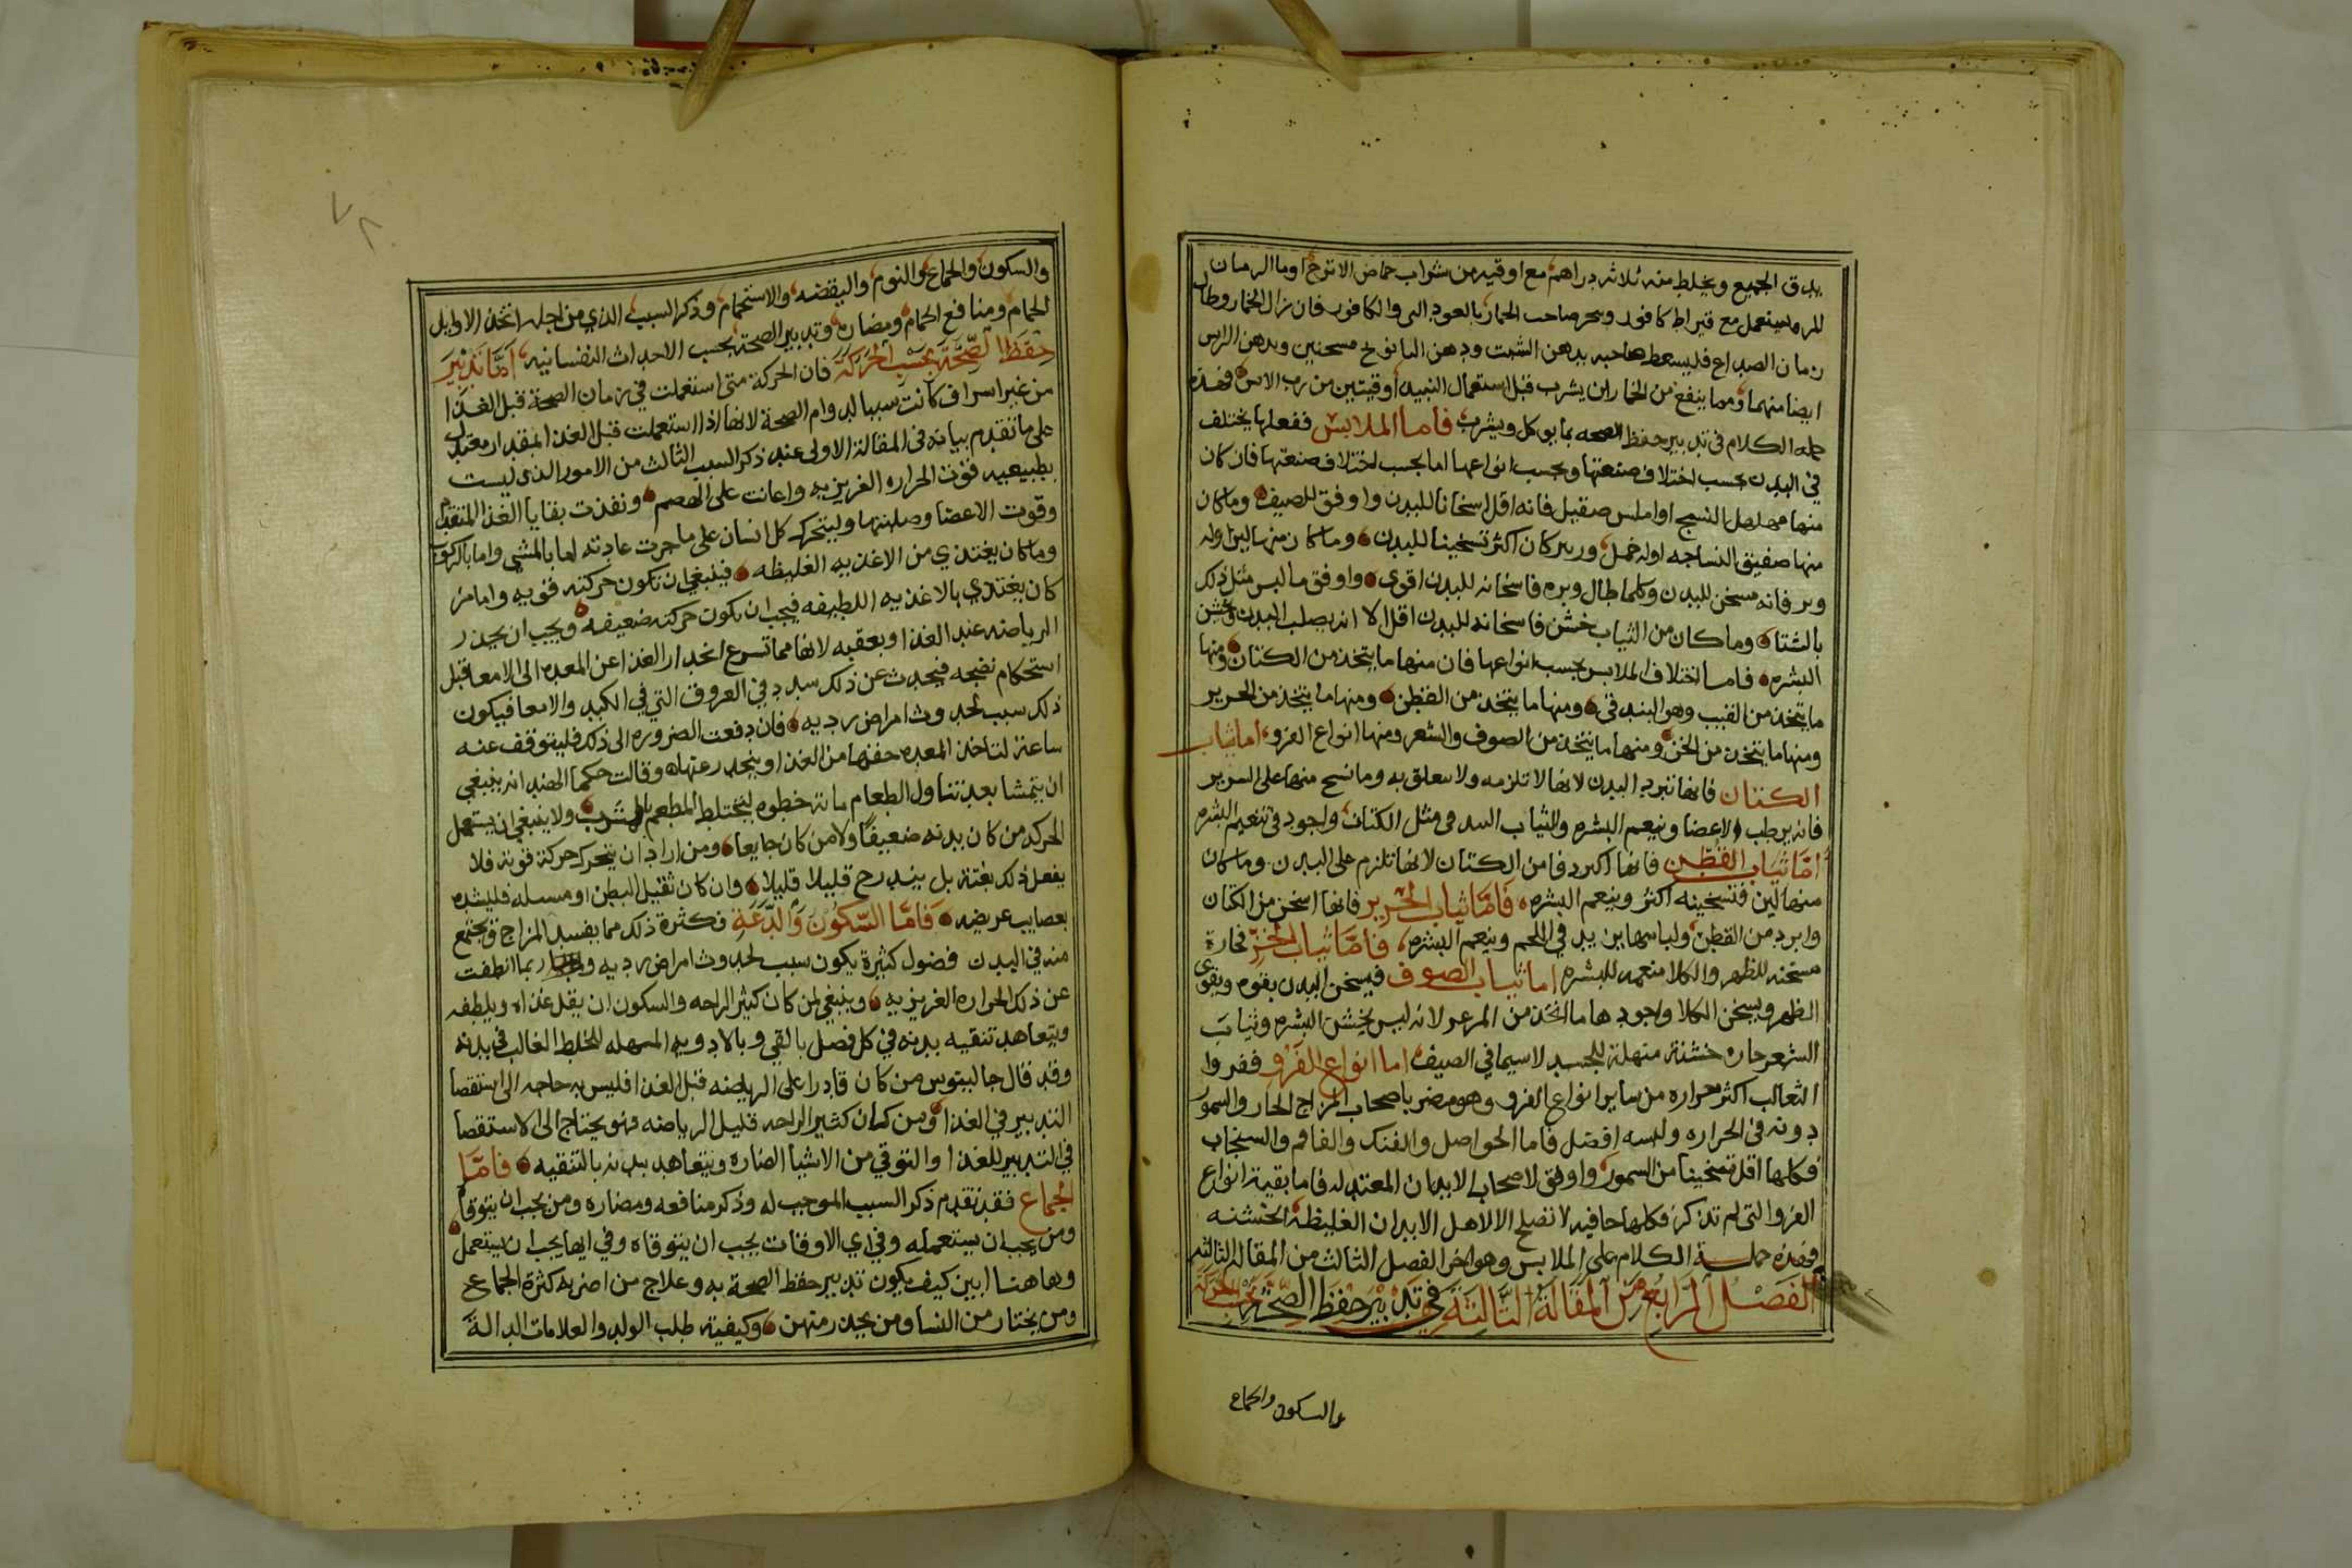 يدق الجميع ويخلط منه ثلاثه دراهم مع اوقيه من شراب حماض الاترج اوما الرمان
المر ويستعمل مع قيراط كافور وبخر صاحب الخمار بالعود الني والكافور فان زال الخمار وطال
زمان الصداع فليسعط صاحبه بدهن الشبت ودهن البابونج مسخنين ويدهن الراس
ايضا منهما ومما ينفع من الخمار ان يشرب قبل استعمال النبيد اوقيتين من رب الاس فهذه
جمله الكلام في تدبير حفظ الصحه بما يوكل ويشرب فاما الملابس ففعلها يختلف
في البدن بحسب اختلاف صنعتها وبحسب انواعها اما بحسب اختلاف صنعتها فان كان
منها مهلهل النسج او املس صقيل فانه اقل اسخانا للبدن واوفق للصيف وما كان
منها صفيق النساجه اوله خمل وزيبر كان اكثر تسخينا للبدن وما كان منها لين اوله
وبر فانه مسخن للبدن وكلما طال وبره فاسخانه للبدن اقوى واوفق ما لبس مثل ذلك
بالشتا وما كان من الثياب خشن فاسخانه للبدن اقل الا انه يصلب البدن ويخشن
البشره فاما اختلاف الملابس بحسب انواعها فان منها ما يتخذ من الكتان ومنها
ما يتخذ من القنب وهو البندقي ومنها ما يتخذ من القطن ومنها ما يتخذ من الحرير
ومنها ما يتخذ من الخز ومنها ما يتخذ من الصوف والشعر ومنها انواع الفرو اما ثياب
الكتان فانها تبرد البدن لانها لا تلزمه ولا تتعلق به وما نسج منها على السرير
فانه يرطب الاعضا وينعم البشره والثياب البندقي مثل الكتان واجود في تنعيم البشره
اما ثياب القطن فانها اكبر دفا من الكتان لانها تلزم على البدن وما كان
منها لين فتسخينه اكثر وينعم البشره فاما ثياب الحرير فانها اسخن من الكتان
وابرد من القطن ولباسها يزيد في اللحم وينعم البشره فاما ثياب الخز فحارة
مسخنه للظهر والكلا منعمه للبشره اما ثياب الصوف فيسخن البدن بقوه ويقوى
الظهر ويسخن الكلا واجودها ما اتخذ من المرعز لانه ليس يخشن البشره وثياب
الشعر حاره خشنة منهلة للجسد لاسيما في الصيف اما انواع الفرو ففروا
الثعالب اكثر حراره من ساير انواع الفرو وهو مضر باصحاب المزاج الحار والسمور
دونه في الحراره ولبسه افضل فاما الحواصل والفنك والقاقم والسنجاب
فكلها اقل تسخينا من السمور واوفق لاصحاب الابدان المعتدله فاما بقية انواع
الفرو التي لم تذكر فكلها جافيه لا تصلح الا لاهل الابدان الغليظة الخشنه
فهذه جملة الكلام على الملابس وهو اخر الفصل الثالث من المقاله الثالثه
الفصل الرابع من المقالة الثالثة في تدبير حفظ الصحة بحسب الحركة
والسكون والجماع
٧٨
والسكون والجماع والنوم واليقضه والاستحمام وذكر السبب الذي من اجله اتخذ الاوايل
الحمام ومنافع الحمام ومضاره وتدبير الصحة بحسب الاحداث النفسانيه اما تدبير
حفظ الصحة بحسب الحركة فان الحركة متى استعملت في زمان الصحة قبل الغذا
من غير اسراف كانت سببا لدوام الصحة لانها اذا استعملت قبل الغذا بمقدار معتدل
على ما تقدم بيانه في المقالة الاولى عند ذكر السبب الثالث من الامور الذى ليست
بطبيعيه قوت الحراره الغريزيه واعانت على الهضم ونفذت بقايا الغذا المتقدم
وقوت الاعضا وصلبتها وليتحرك كل انسان على ما جرت عادته اما بالمشي واما بالركوب
وما كان يغتذي من الاغذيه الغليظه فينبغي ان تكون حركته قويه واما من
كان يغتذي بالاغذيه اللطيفه فيجب ان تكون حركته ضعيفه ويجب ان يحذر
الرياضه عند الغذا وبعقبه لانها مما تسرع انحدار الغذا عن المعده الى الامعا قبل
استحكام نضجه فيحدث عن ذلك سدد في العروق التي في الكبد والامعا فيكون
ذلك سبب لحدوث امراض رديه فان دفعت الضروره الى ذلك فليتوقف عنه
ساعة لتاخذ المعده حفزها من الغذا وينحدر عنها وقالت حكما الهند انه ينبغي
ان يتمشا بعد تناول الطعام مائة خطوه ليختلط المطعم بالمشرب ولا ينبغي ان يستعمل
الحركه من كان بدنه ضعيفا ولا من كان جايعا ومن اراد ان يتحرك حركة قوية فلا
يفعل ذلك بغتة بل يندرج قليلا قليلا وان كان ثقيل البطن او مسبله فليشده
بعصايب عريضه فاما السكون والدعة فكثرة ذلك مما يفسد المزاج ويجتمع
منه في البدن فضول كثيرة يكون سبب لحدوث امراض رديه وربما انطفت
عن ذلك الحراره الغريزيه وينبغي لمن كان كثير الراحه والسكون ان يقلل غذاه ويلطفه
ويتعاهد تنقيه بدنه في كل فصل بالقي وبالادويه المسهله للخلط الغالب في بدنه
وقد قال جالينوس من كان قادرا على الرياضه قبل الغذا فليس به حاجه الى استقصا
التدبير في الغذا ومن كان كثير الراحه قليل الرياضه فهو يحتاج الى الاستقصا
في التدبير للغذا والتوقي من الاشيا الضاره ويتعاهد بدنه بالتنقيه فاما
الجماع فقد تقدم ذكر السبب الموجب له وذكر منافعه ومضاره ومن يجب ان يتوقاه
ومن يجب ان يستعمله وفي اي الاوقات يجب ان يتوقاه وفي ايها يجب ان يستعمل
وهاهنا ابين كيف يكون تدبير حفظ الصحة به وعلاج من اضر به كثرة الجماع
ومن يختار من النسا ومن يحذر منهن وكيفية طلب الولد والعلامات الدالة